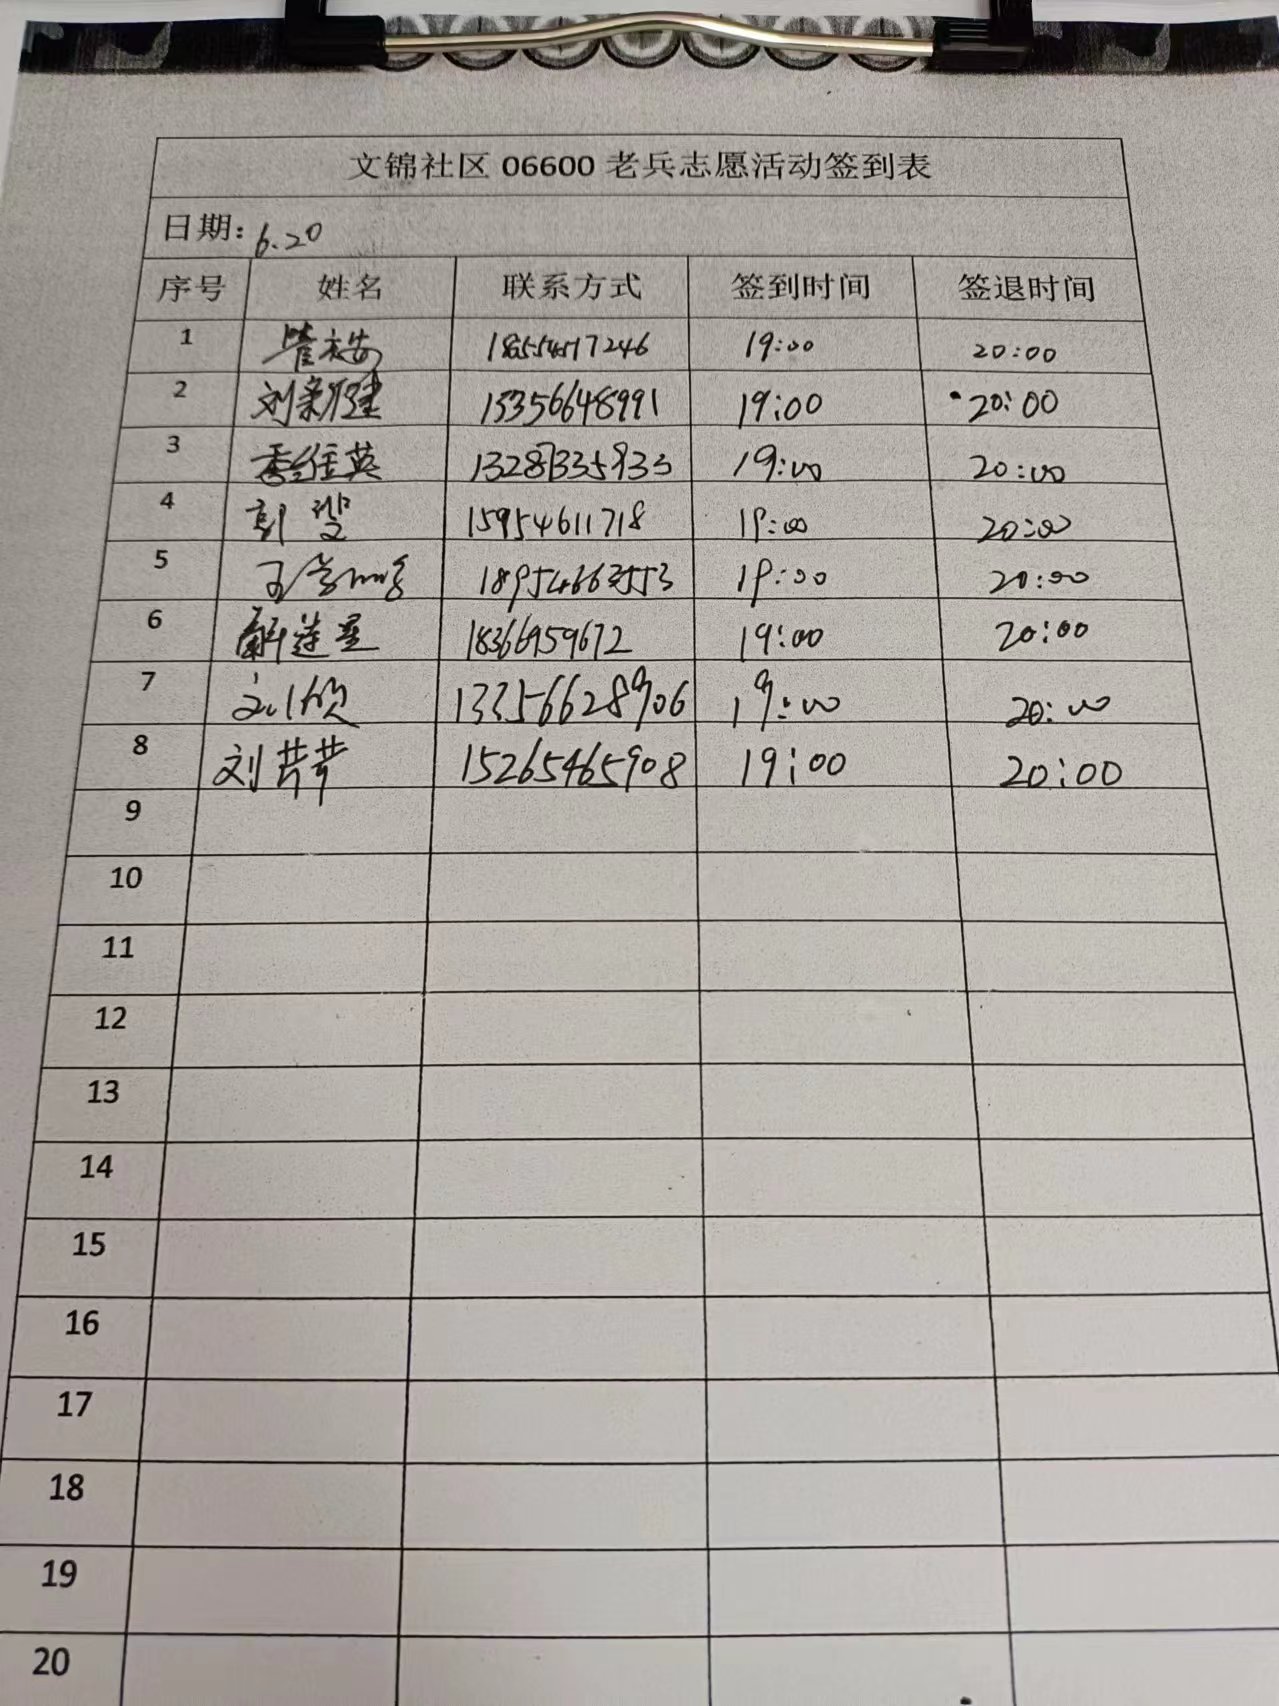 文锦社区 06600 老兵志愿活动签到表
日期: 6.20
序号 姓名 联系方式 签到时间 签退时间
1 19:00 20:00
2 刘新健 15356648991 19:00 20:00
3 季维英 19:00 20:00
4 15954611718 19:00 20:00
5 19:00 20:00
6 解莲星 18366959672 19:00 20:00
7 刘欣 13356628906 19:00 20:00
8 刘芹芹 15265465908 19:00 20:00
9
10
11
12
13
14
15
16
17
18
19
20